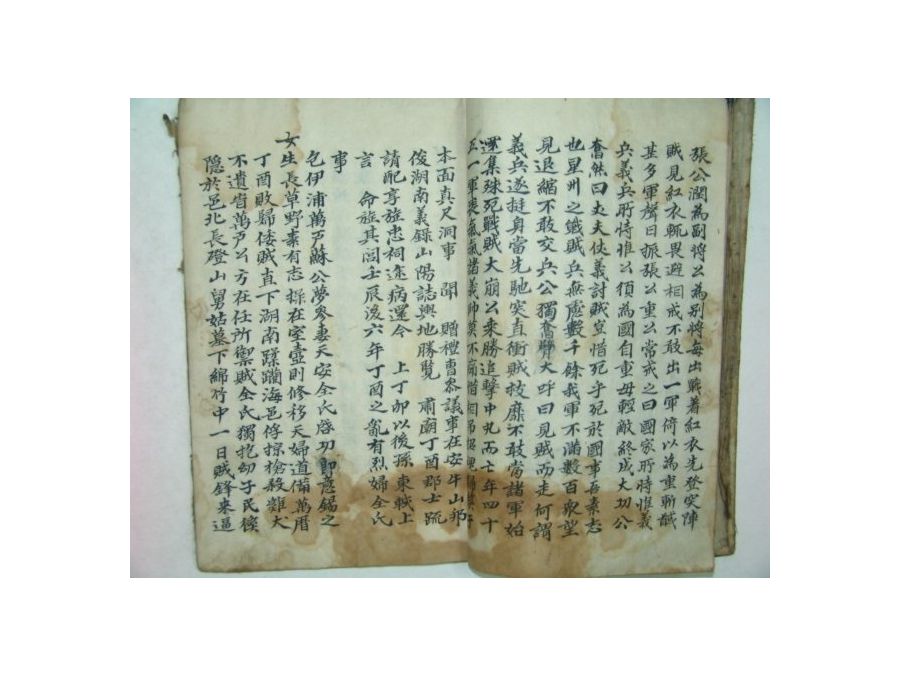 張公潤為副將公為別將每出戰著紅衣先登突陣
賊見紅衣輒畏避相戒不敢出一軍倚以為重斬馘
甚多軍聲日振張公重公常戒之曰國家所恃惟義
兵義兵所恃惟公須為國自重毋輕敵終成大功公
奮然曰丈夫仗義討賊豈惜死乎死於國事吾素志
也星州之戰賊兵無慮數千餘我軍不滿數百眾望
見退縮不敢交兵公獨奮臂大呼曰見賊而走何謂
義兵遂挺身當先馳突直衝賊披靡不敢當諸軍始
還集殊死戰賊大崩公乘勝追擊中丸而亡年四十
五一軍喪氣諸義帥莫不痛惜相吊
本面真尺洞事 聞 贈禮曹參議事在安牛山邦
俊湖南義錄山陽誌輿地勝覽 肅廟丁酉郡士疏
請配享旌忠祠途病還今 上丁卯以後孫東軾上
言 命旌其閭壬辰後六年丁酉之亂有烈婦全氏
事
乞伊浦萬戶蘇公夢參妻天安全氏啓功即意錫之
女生長草野素有志操在室壼則修移天婦道備萬曆
丁酉敗歸倭賊直下湖南蹂躪海邑俘掠槍殺雞犬
不遺時萬戶公方在任所禦賊全氏獨抱幼子民
隱於邑北長燈山舅姑墓下綿竹中一日賊鋒来逼